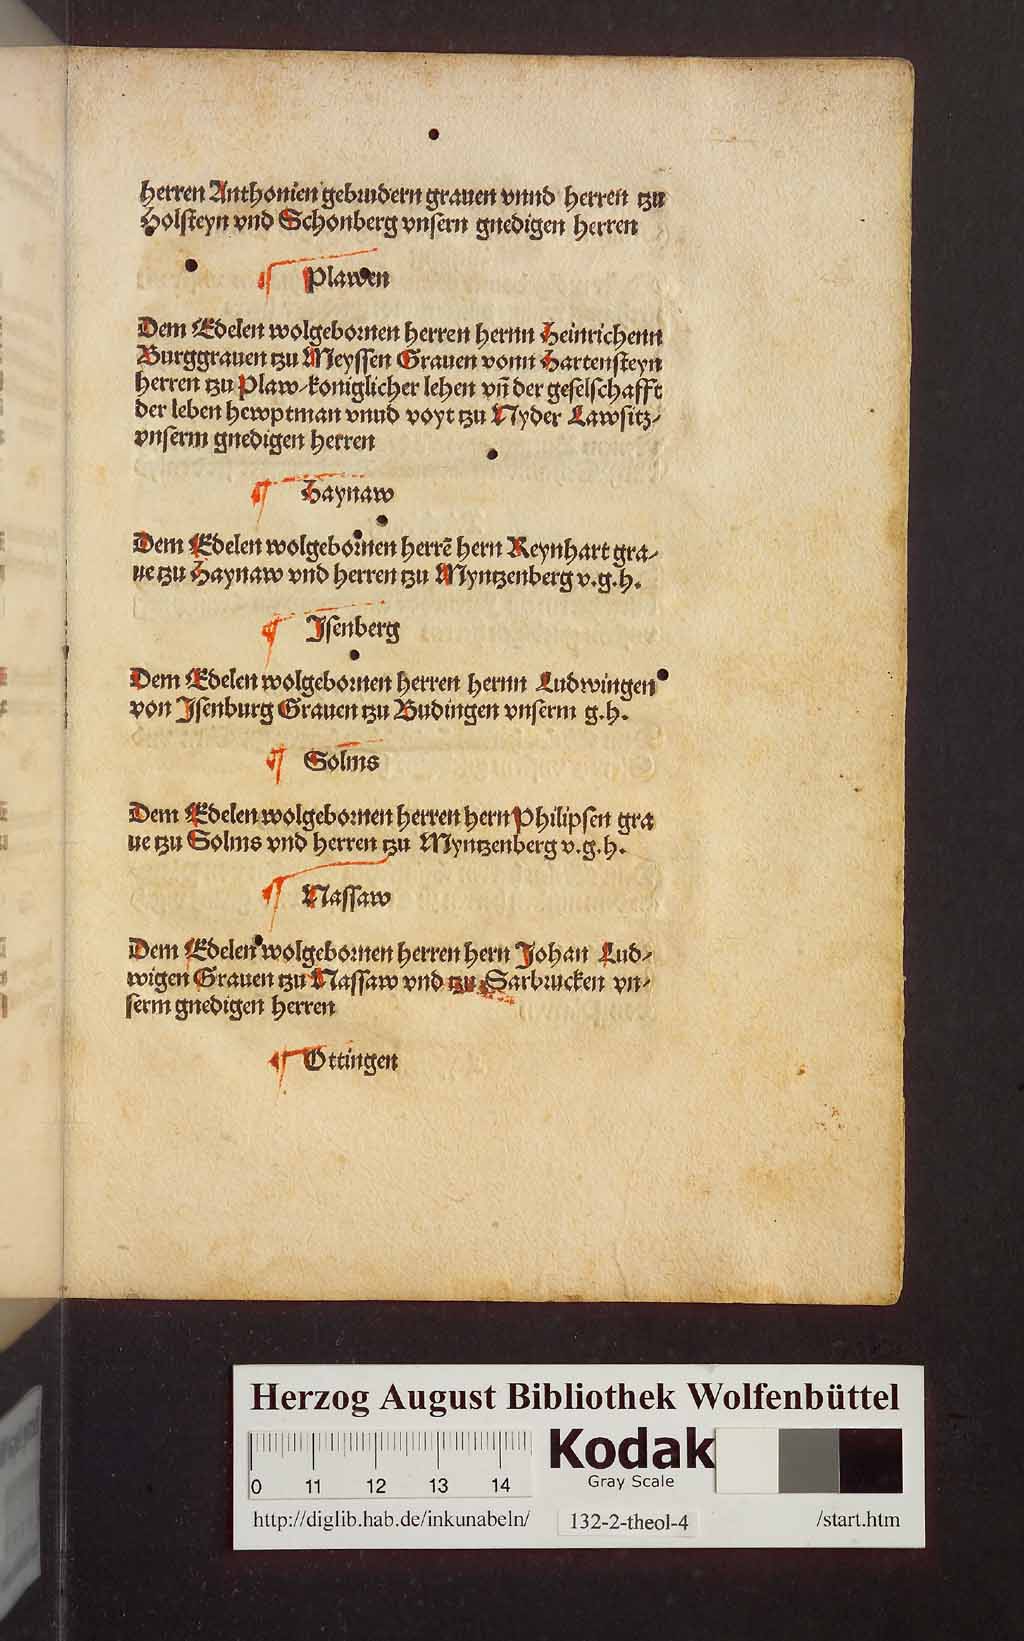 herren Anthonien gebrudern grauen vnnd herren tzu
Holsteyn vnd Schonberg vnsern gnedigen herren
¶ Plawen
Dem Edelen wolgebornen herren hernn Heinrichenn
Burggrauen tzu Meyssen Grauen vonn Hartensteyn
herren tzu Plaw/koniglicher lehen vñ der geselschafft
der leben hewptman vnud voyt tzu Nyder Lawsitz/
vnserm gnedigen herren
¶ Haynaw
Dem Edelen wolgebornen herrē hern Reynhart gra/
ue tzu Haynaw vnd herren tzu Myntzenberg v.g.h.
¶ Jsenberg
Dem Edelen wolgebornen herren hernn Ludwingen
von Jsenburg Grauen tzu Budingen vnserm g.h.
¶ Solms
Dem Edelen wolgebornen herren hern Philipsen gra
ue tzu Solms vnd herren tzu Myntzenberg v.g.h.
¶ Nassaw
Dem Edelen wolgebornen herren hern Johan Lud/
wigen Grauen tzu Nassaw vnd tzu Sarbrucken vn/
serm gnedigen herren
¶ Ottingen
Herzog August Bibliothek Wolfenbüttel
0 11 12 13 14
Kodak
Gray Scale
http://diglib.hab.de/inkunabeln/ 132-2-theol-4 /start.htm